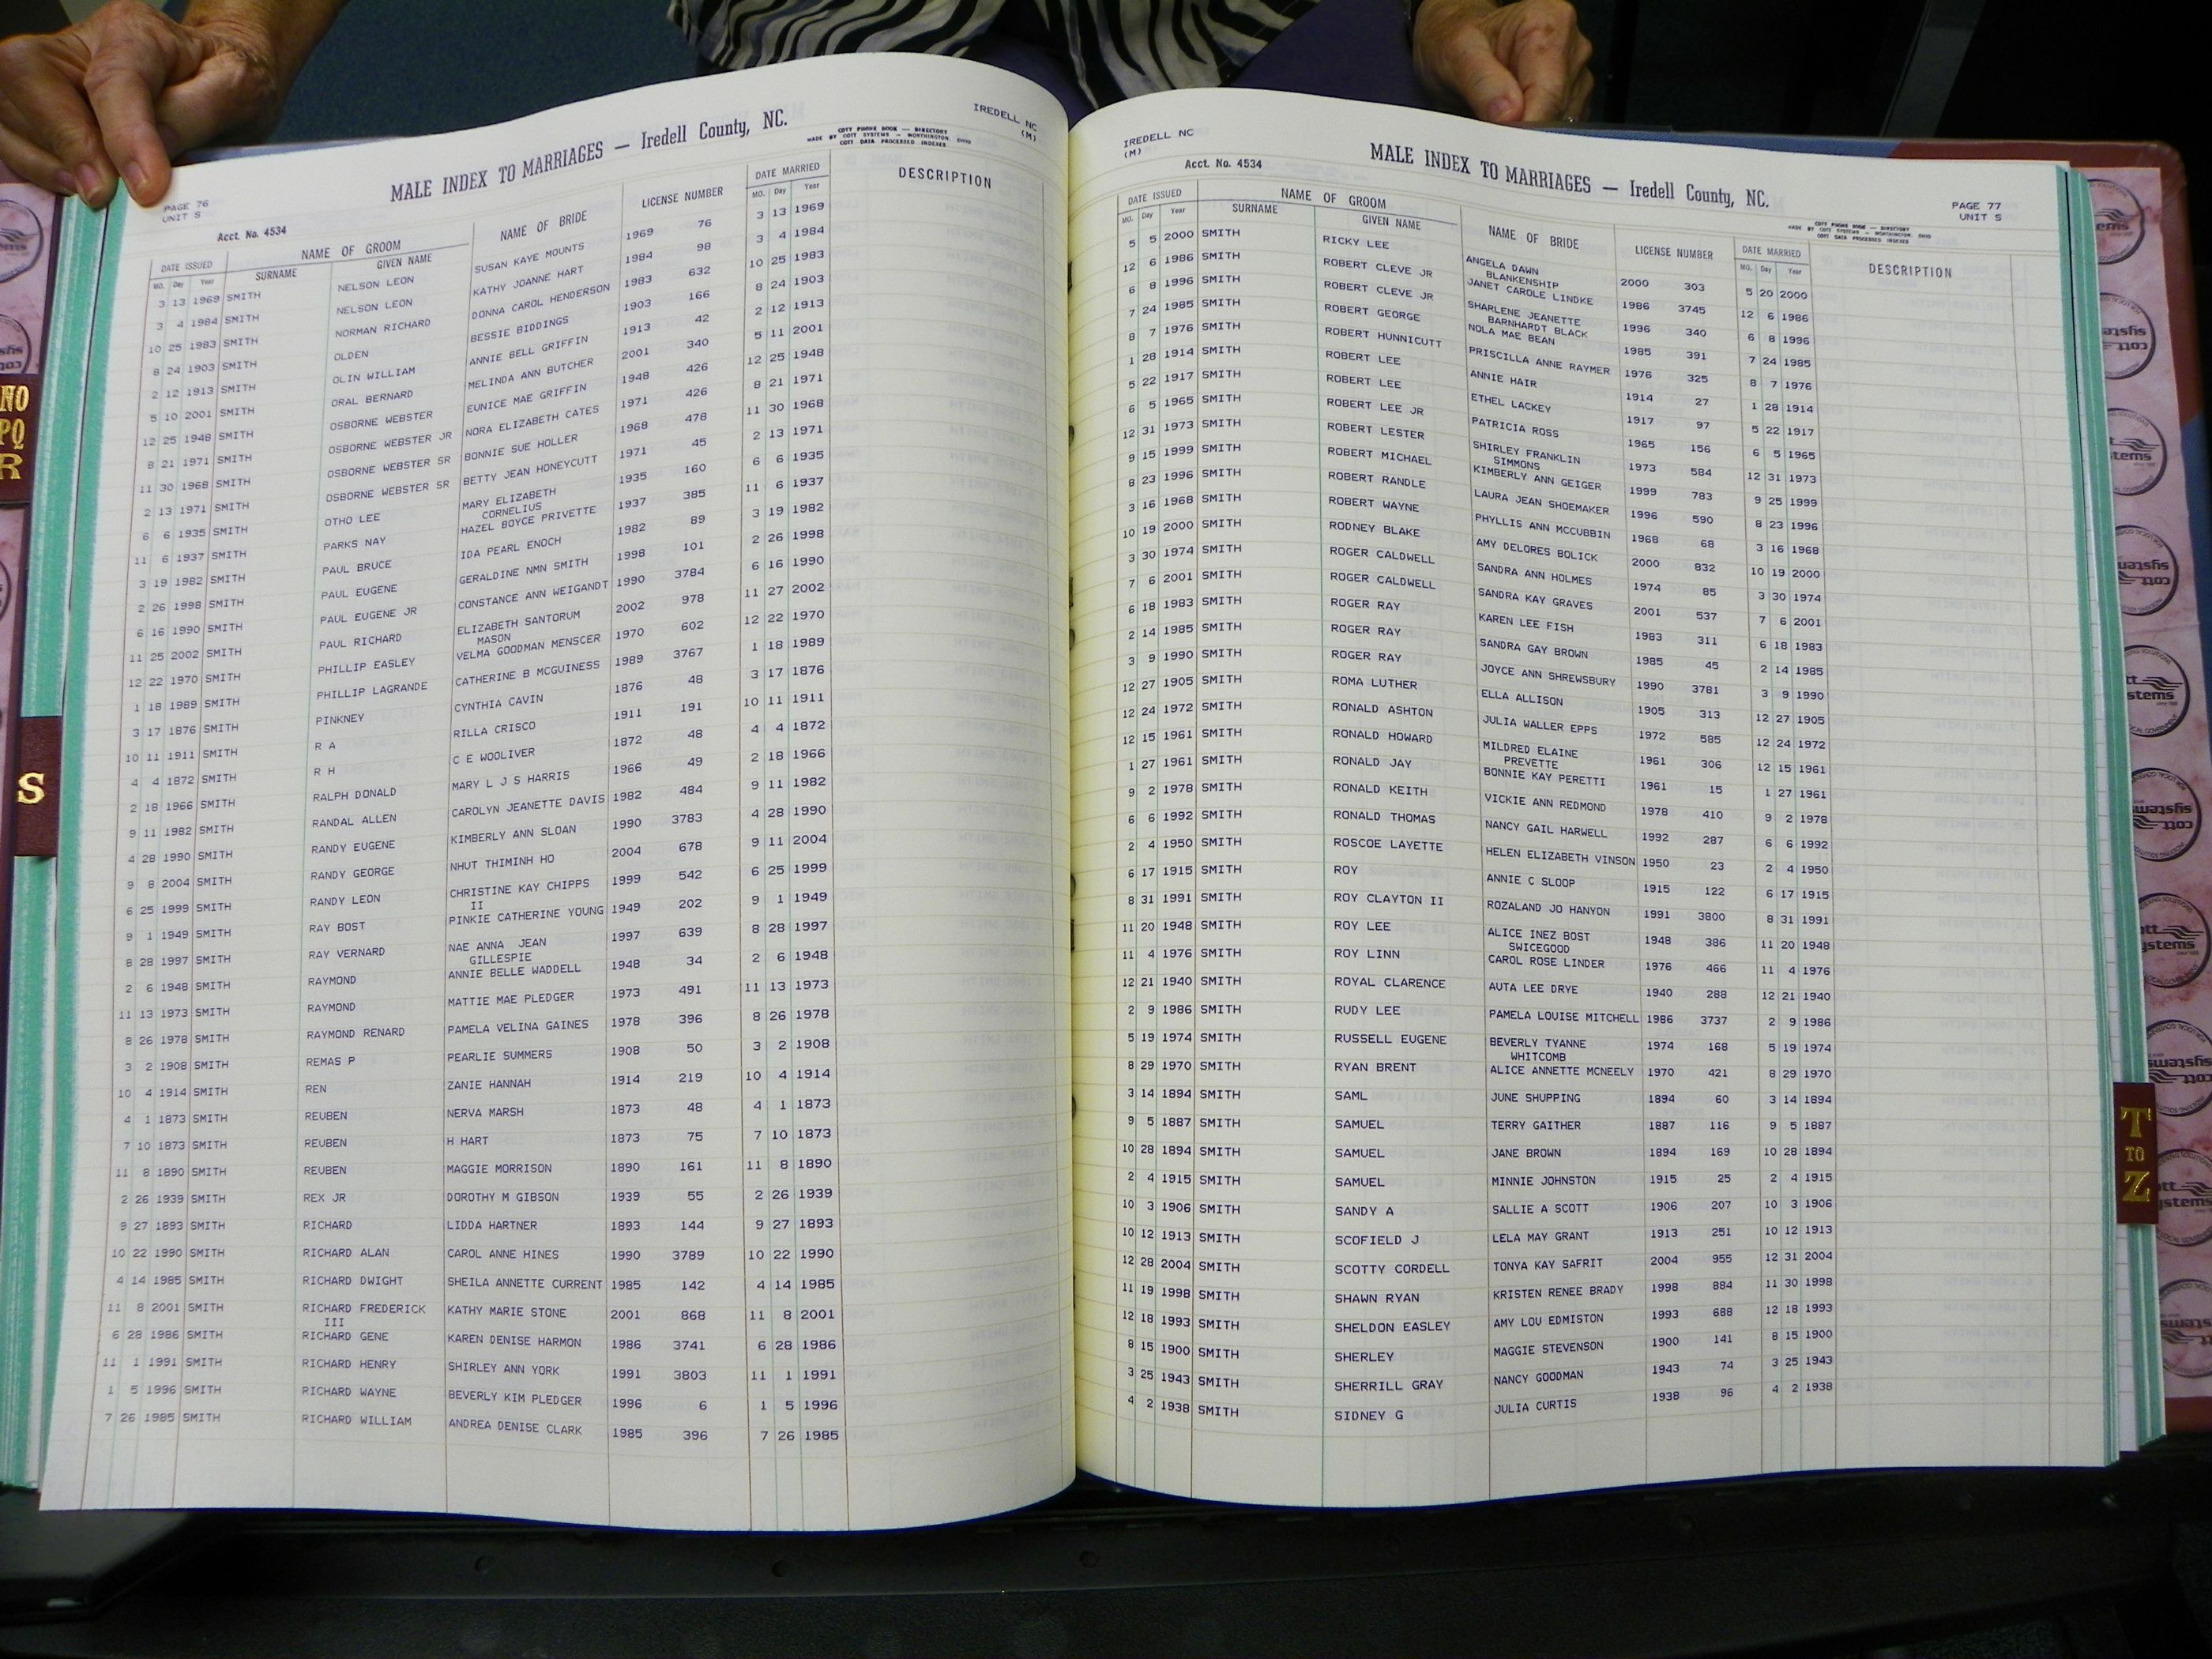 PAGE 76
UNIT S
Acct. No. 4534
MALE INDEX TO MARRIAGES — Iredell County, NC.
COTT PHONE BOOK — DIRECTORY
MADE BY COTT SYSTEMS — WORTHINGTON, OHIO
COTT DATA PROCESSED INDEXES
IREDELL NC
(M)
DATE ISSUED NAME OF GROOM NAME OF BRIDE LICENSE NUMBER DATE MARRIED DESCRIPTION
MO. Day Year SURNAME GIVEN NAME MO. Day Year
3 13 1969 SMITH NELSON LEON SUSAN KAYE MOUNTS 1969 76 3 13 1969
3 4 1984 SMITH NELSON LEON KATHY JOANNE HART 1984 98 3 4 1984
10 25 1983 SMITH NORMAN RICHARD DONNA CAROL HENDERSON 1983 632 10 25 1983
8 24 1903 SMITH OLDEN BESSIE BIDDINGS 1903 166 8 24 1903
2 12 1913 SMITH OLIN WILLIAM ANNIE BELL GRIFFIN 1913 42 2 12 1913
5 10 2001 SMITH ORAL BERNARD MELINDA ANN BUTCHER 2001 340 5 11 2001
12 25 1948 SMITH OSBORNE WEBSTER EUNICE MAE GRIFFIN 1948 426 12 25 1948
8 21 1971 SMITH OSBORNE WEBSTER JR NORA ELIZABETH CATES 1971 426 8 21 1971
11 30 1968 SMITH OSBORNE WEBSTER SR BONNIE SUE HOLLER 1968 478 11 30 1968
2 13 1971 SMITH OSBORNE WEBSTER SR BETTY JEAN HONEYCUTT 1971 45 2 13 1971
6 6 1935 SMITH OTHO LEE MARY ELIZABETH 1935 160 6 6 1935
CORNELIUS
11 6 1937 SMITH PARKS NAY HAZEL BOYCE PRIVETTE 1937 385 11 6 1937
3 19 1982 SMITH PAUL BRUCE IDA PEARL ENOCH 1982 89 3 19 1982
2 26 1998 SMITH PAUL EUGENE GERALDINE NMN SMITH 1998 101 2 26 1998
6 16 1990 SMITH PAUL EUGENE JR CONSTANCE ANN WEIGANDT 1990 3784 6 16 1990
11 25 2002 SMITH PAUL RICHARD ELIZABETH SANTORUM 2002 978 11 27 2002
MASON
12 22 1970 SMITH PHILLIP EASLEY VELMA GOODMAN MENSCER 1970 602 12 22 1970
1 18 1989 SMITH PHILLIP LAGRANDE CATHERINE B MCGUINESS 1989 3767 1 18 1989
3 17 1876 SMITH PINKNEY CYNTHIA CAVIN 1876 48 3 17 1876
10 11 1911 SMITH R A RILLA CRISCO 1911 191 10 11 1911
4 4 1872 SMITH R H C E WOOLIVER 1872 48 4 4 1872
2 18 1966 SMITH RALPH DONALD MARY L J S HARRIS 1966 49 2 18 1966
9 11 1982 SMITH RANDAL ALLEN CAROLYN JEANETTE DAVIS 1982 484 9 11 1982
4 28 1990 SMITH RANDY EUGENE KIMBERLY ANN SLOAN 1990 3783 4 28 1990
9 8 2004 SMITH RANDY GEORGE NHUT THIMINH HO 2004 678 9 11 2004
6 25 1999 SMITH RANDY LEON CHRISTINE KAY CHIPPS 1999 542 6 25 1999
II
9 1 1949 SMITH RAY BOST PINKIE CATHERINE YOUNG 1949 202 9 1 1949
8 28 1997 SMITH RAY VERNARD NAE ANNA JEAN 1997 639 8 28 1997
GILLESPIE
2 6 1948 SMITH RAYMOND ANNIE BELLE WADDELL 1948 34 2 6 1948
11 13 1973 SMITH RAYMOND MATTIE MAE PLEDGER 1973 491 11 13 1973
8 26 1978 SMITH RAYMOND RENARD PAMELA VELINA GAINES 1978 396 8 26 1978
3 2 1908 SMITH REMAS P PEARLIE SUMMERS 1908 50 3 2 1908
10 4 1914 SMITH REN ZANIE HANNAH 1914 219 10 4 1914
4 1 1873 SMITH REUBEN NERVA MARSH 1873 48 4 1 1873
7 10 1873 SMITH REUBEN H HART 1873 75 7 10 1873
11 8 1890 SMITH REUBEN MAGGIE MORRISON 1890 161 11 8 1890
2 26 1939 SMITH REX JR DOROTHY M GIBSON 1939 55 2 26 1939
9 27 1893 SMITH RICHARD LIDDA HARTNER 1893 144 9 27 1893
10 22 1990 SMITH RICHARD ALAN CAROL ANNE HINES 1990 3789 10 22 1990
4 14 1985 SMITH RICHARD DWIGHT SHEILA ANNETTE CURRENT 1985 142 4 14 1985
11 8 2001 SMITH RICHARD FREDERICK KATHY MARIE STONE 2001 868 11 8 2001
III
6 28 1986 SMITH RICHARD GENE KAREN DENISE HARMON 1986 3741 6 28 1986
11 1 1991 SMITH RICHARD HENRY SHIRLEY ANN YORK 1991 3803 11 1 1991
1 5 1996 SMITH RICHARD WAYNE BEVERLY KIM PLEDGER 1996 6 1 5 1996
7 26 1985 SMITH RICHARD WILLIAM ANDREA DENISE CLARK 1985 396 7 26 1985
IREDELL NC
(M)
Acct. No. 4534
MALE INDEX TO MARRIAGES — Iredell County, NC.
COTT PHONE BOOK — DIRECTORY
MADE BY COTT SYSTEMS — WORTHINGTON, OHIO
COTT DATA PROCESSED INDEXES
PAGE 77
UNIT S
DATE ISSUED NAME OF GROOM NAME OF BRIDE LICENSE NUMBER DATE MARRIED DESCRIPTION
MO. Day Year SURNAME GIVEN NAME MO. Day Year
5 5 2000 SMITH RICKY LEE ANGELA DAWN 2000 303 5 20 2000
BLANKENSHIP
12 6 1986 SMITH ROBERT CLEVE JR JANET CAROLE LINDKE 1986 3745 12 6 1986
6 8 1996 SMITH ROBERT CLEVE JR SHARLENE JEANETTE 1996 340 6 8 1996
BARNHARDT BLACK
7 24 1985 SMITH ROBERT GEORGE NOLA MAE BEAN 1985 391 7 24 1985
8 7 1976 SMITH ROBERT HUNNICUTT PRISCILLA ANNE RAYMER 1976 325 8 7 1976
1 28 1914 SMITH ROBERT LEE ANNIE HAIR 1914 27 1 28 1914
5 22 1917 SMITH ROBERT LEE ETHEL LACKEY 1917 97 5 22 1917
6 5 1965 SMITH ROBERT LEE JR PATRICIA ROSS 1965 156 6 5 1965
12 31 1973 SMITH ROBERT LESTER SHIRLEY FRANKLIN 1973 584 12 31 1973
SIMMONS
9 15 1999 SMITH ROBERT MICHAEL KIMBERLY ANN GEIGER 1999 783 9 25 1999
8 23 1996 SMITH ROBERT RANDLE LAURA JEAN SHOEMAKER 1996 590 8 23 1996
3 16 1968 SMITH ROBERT WAYNE PHYLLIS ANN MCCUBBIN 1968 68 3 16 1968
10 19 2000 SMITH RODNEY BLAKE AMY DELORES BOLICK 2000 832 10 19 2000
3 30 1974 SMITH ROGER CALDWELL SANDRA ANN HOLMES 1974 85 3 30 1974
7 6 2001 SMITH ROGER CALDWELL SANDRA KAY GRAVES 2001 537 7 6 2001
6 18 1983 SMITH ROGER RAY KAREN LEE FISH 1983 311 6 18 1983
2 14 1985 SMITH ROGER RAY SANDRA GAY BROWN 1985 45 2 14 1985
3 9 1990 SMITH ROGER RAY JOYCE ANN SHREWSBURY 1990 3781 3 9 1990
12 27 1905 SMITH ROMA LUTHER ELLA ALLISON 1905 313 12 27 1905
12 24 1972 SMITH RONALD ASHTON JULIA WALLER EPPS 1972 585 12 24 1972
12 15 1961 SMITH RONALD HOWARD MILDRED ELAINE 1961 306 12 15 1961
PREVETTE
1 27 1961 SMITH RONALD JAY BONNIE KAY PERETTI 1961 15 1 27 1961
9 2 1978 SMITH RONALD KEITH VICKIE ANN REDMOND 1978 410 9 2 1978
6 6 1992 SMITH RONALD THOMAS NANCY GAIL HARWELL 1992 287 6 6 1992
2 4 1950 SMITH ROSCOE LAYETTE HELEN ELIZABETH VINSON 1950 23 2 4 1950
6 17 1915 SMITH ROY ANNIE C SLOOP 1915 122 6 17 1915
8 31 1991 SMITH ROY CLAYTON II ROZALAND JO HANYON 1991 3800 8 31 1991
11 20 1948 SMITH ROY LEE ALICE INEZ BOST 1948 386 11 20 1948
SWICEGOOD
11 4 1976 SMITH ROY LINN CAROL ROSE LINDER 1976 466 11 4 1976
12 21 1940 SMITH ROYAL CLARENCE AUTA LEE DRYE 1940 288 12 21 1940
2 9 1986 SMITH RUDY LEE PAMELA LOUISE MITCHELL 1986 3737 2 9 1986
5 19 1974 SMITH RUSSELL EUGENE BEVERLY TYANNE 1974 168 5 19 1974
WHITCOMB
8 29 1970 SMITH RYAN BRENT ALICE ANNETTE MCNEELY 1970 421 8 29 1970
3 14 1894 SMITH SAML JUNE SHUPPING 1894 60 3 14 1894
9 5 1887 SMITH SAMUEL TERRY GAITHER 1887 116 9 5 1887
10 28 1894 SMITH SAMUEL JANE BROWN 1894 169 10 28 1894
2 4 1915 SMITH SAMUEL MINNIE JOHNSTON 1915 25 2 4 1915
10 3 1906 SMITH SANDY A SALLIE A SCOTT 1906 207 10 3 1906
10 12 1913 SMITH SCOFIELD J LELA MAY GRANT 1913 251 10 12 1913
12 28 2004 SMITH SCOTTY CORDELL TONYA KAY SAFRIT 2004 955 12 31 2004
11 19 1998 SMITH SHAWN RYAN KRISTEN RENEE BRADY 1998 884 11 30 1998
12 18 1993 SMITH SHELDON EASLEY AMY LOU EDMISTON 1993 688 12 18 1993
8 15 1900 SMITH SHERLEY MAGGIE STEVENSON 1900 141 8 15 1900
3 25 1943 SMITH SHERRILL GRAY NANCY GOODMAN 1943 74 3 25 1943
4 2 1938 SMITH SIDNEY G JULIA CURTIS 1938 96 4 2 1938
NO
PQ
R
S
T
TO
Z